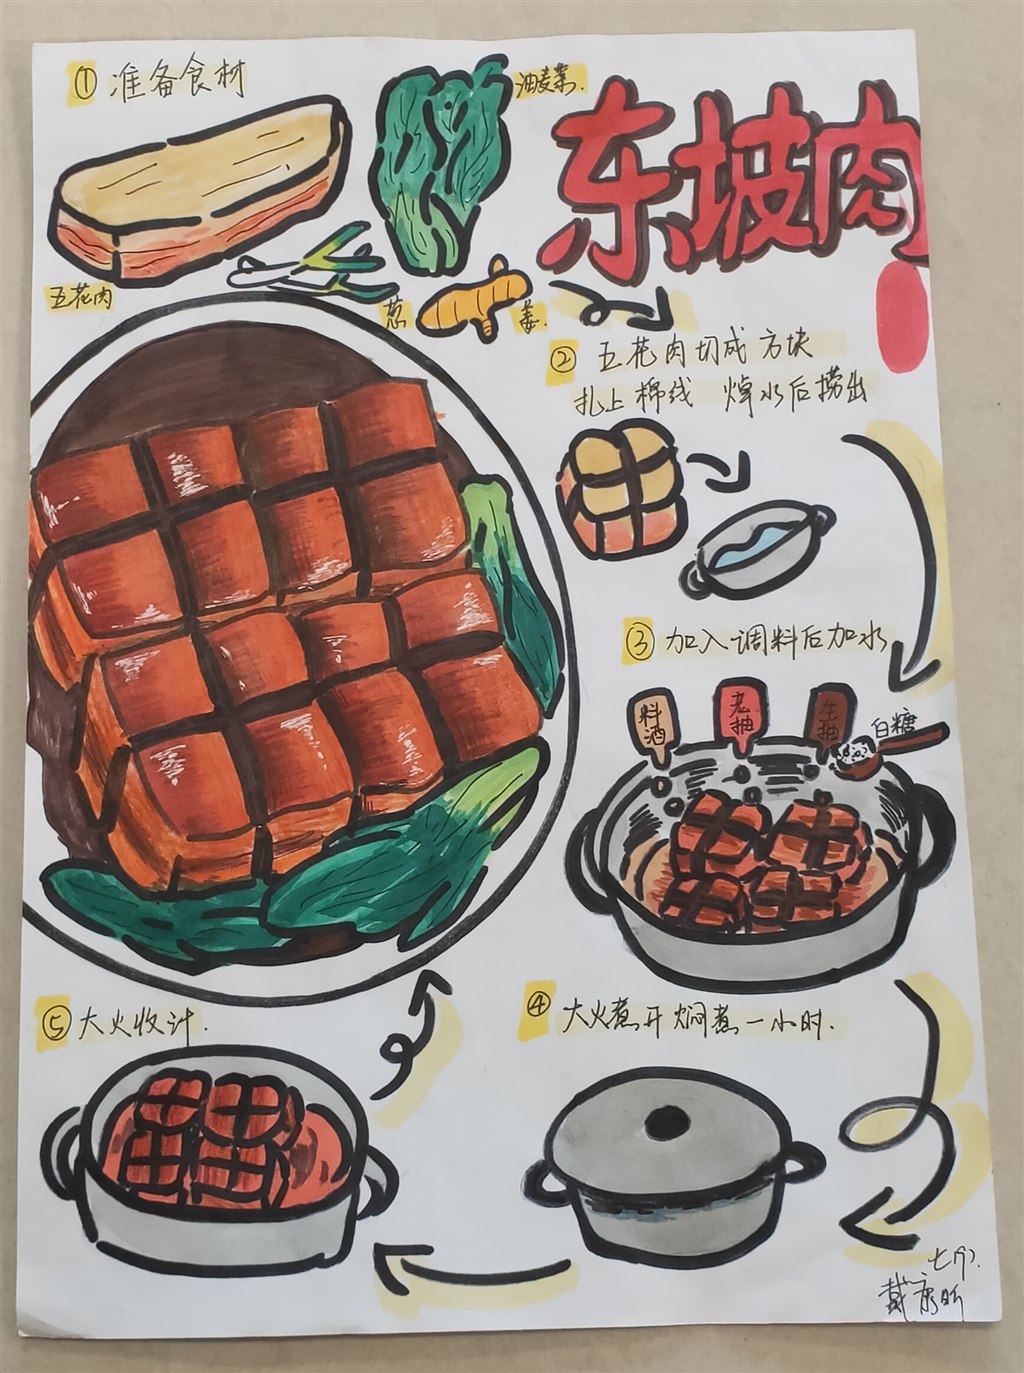 东坡肉
①准备食材
油麦菜.
五花肉
葱
姜.
②五花肉切成方块
扎上棉线 焯水后捞出
③加入调料后加水
料酒
老抽
生抽
白糖
④大火煮开焖煮一小时.
⑤大火收汁.